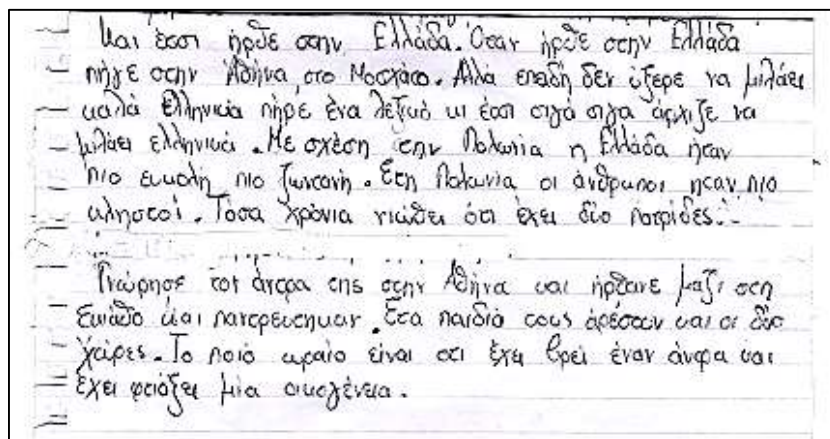 Και έτσι ήρθε στην Ελλάδα. Όταν ήρθε στην Ελλάδα
πήγε στην Αθήνα, στο Μοσχάτο. Αλλά επειδή δεν ύξερε να μιλάει
καλά Ελληνικά πήρε ένα λεξικό κι έτσι σιγά σιγα άρχιζε να
μιλάει ελληνικά. Με σχέση στην Πολωνία η Ελλάδα ήταν
πιο ευκολη πιο ζωντανή. Στη Πολωνία οι άνθρωποι ηταν πιο
κληστοί. Τόσα χρόνια νιώθει ότι έχει δύο πατρίδες.
Γνώρησε τον άντρα της στην Αθήνα και ήρθανε μαζι στη
και παντρευτηκαν. Στα παιδιά τους αρέσουν και οι δύο
χώρες. Το ποιό ωραίο είναι οτι έχει βρεί έναν άνρα και
έχει φτιάξει μία οικογένεια.